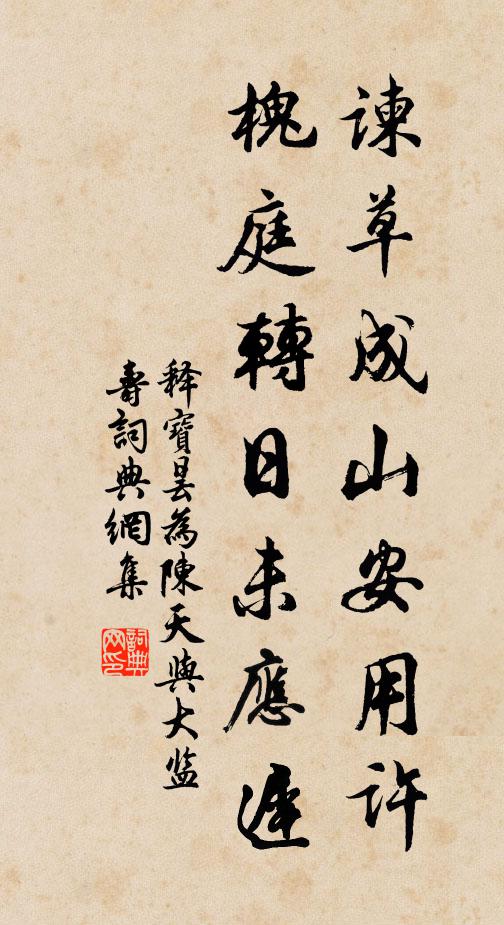 諫草成山安用許
槐庭轉日未應遲
释寶曇為陳天與大监
壽詞典網集
詞典网印